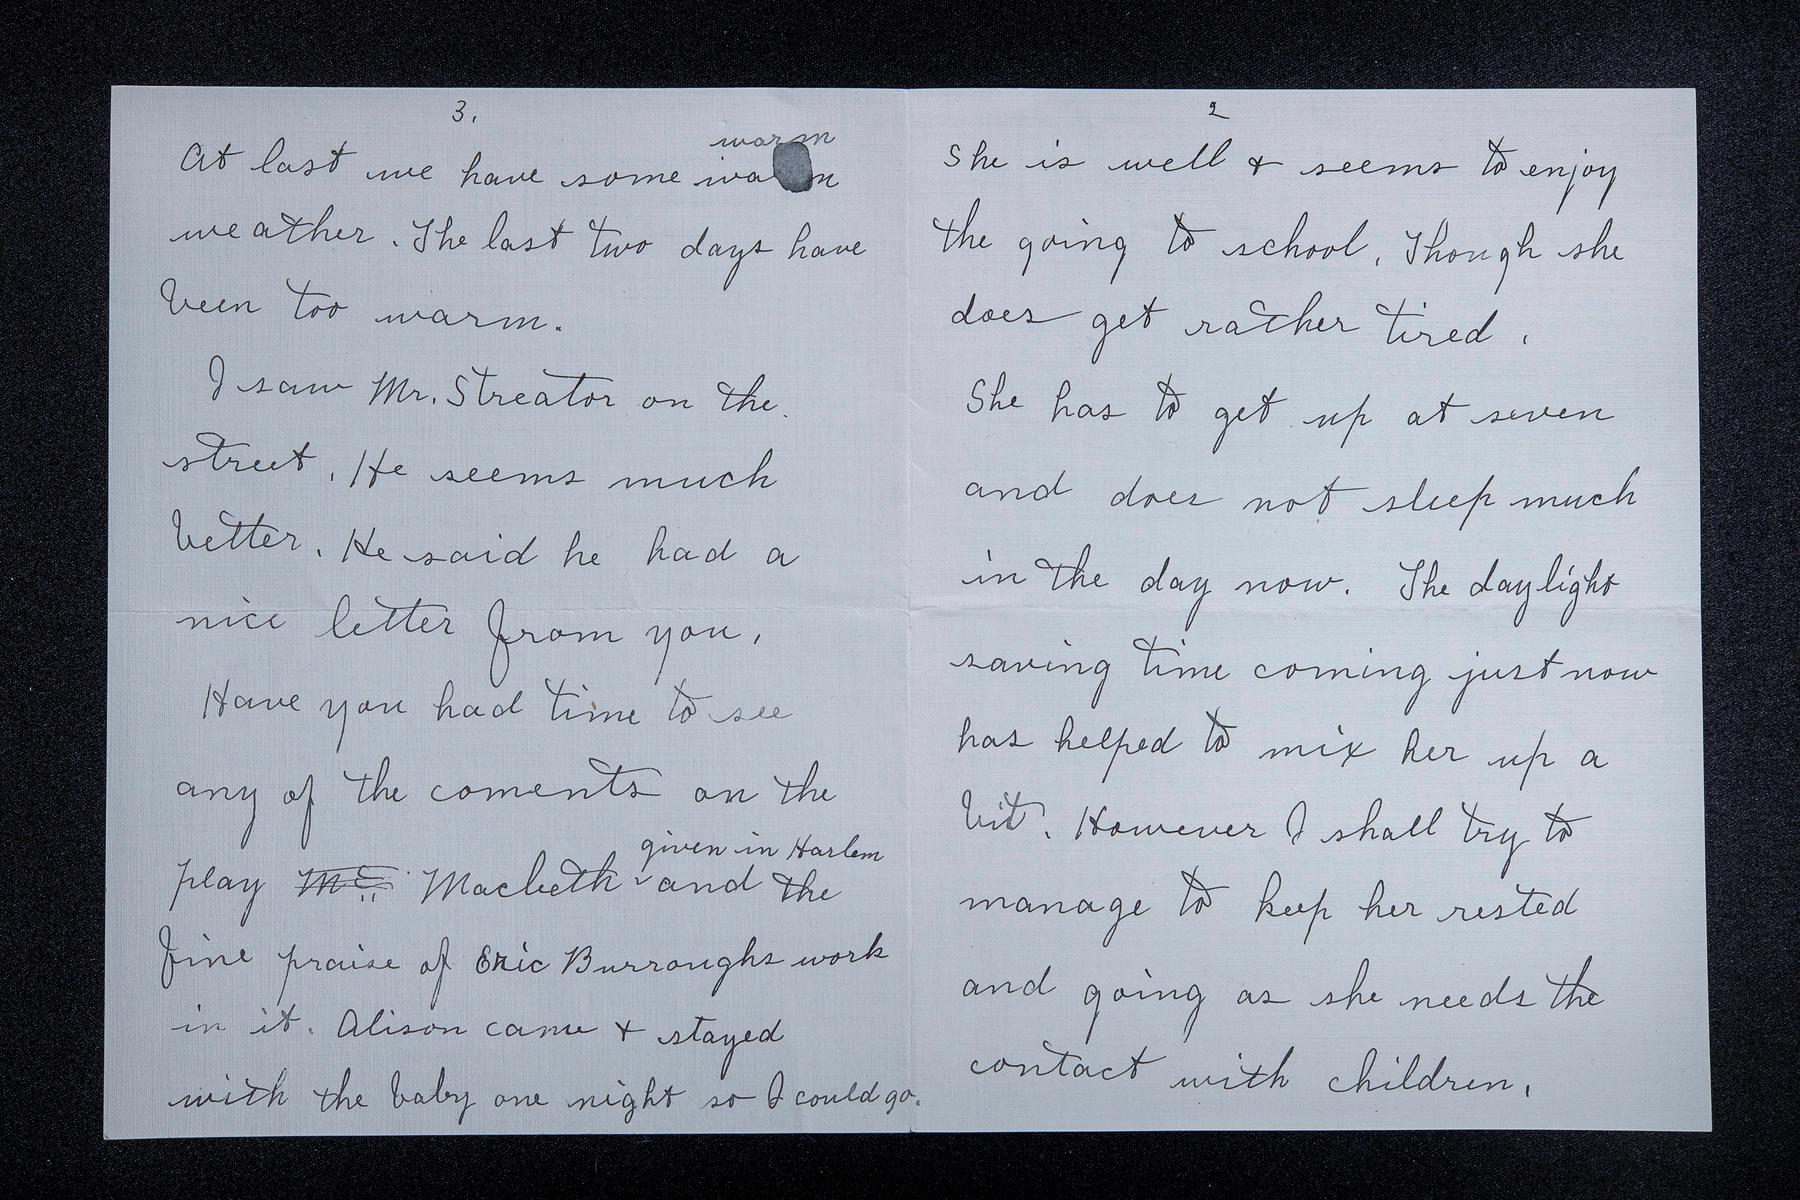 2
She is well & seems to enjoy
the going to school. Though she
does get rather tired.
She has to get up at seven
and does not sleep much
in the day now. The daylight
saving time coming just now
has helped to mix her up a
bit. However I shall try to
manage to keep her rested
and going as she needs the
contact with children.
3.
warm
At last we have some warm
weather. The last two days have
been too warm.
I saw Mr. Streator on the
street. He seems much
better. He said he had a
nice letter from you.
Have you had time to see
any of the coments on the
given in Harlem
play Macbeth and the
fine praise of Eric Burroughs work
in it. Alison came & stayed
with the baby one night so I could go.